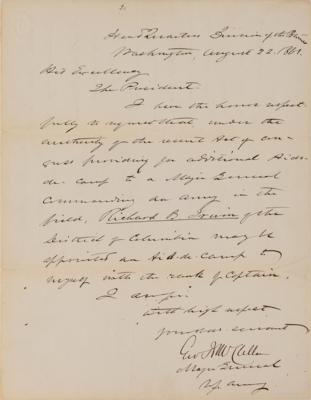 Head Quarters Division of the Potomac
Washington, August 22. 1861.
His Excellency
The President.
I have the honor respect
fully to request that, under the
authority of the recent Act of Con
gress providing for additional Aids-
de-camp to a Major General
commanding an army in the
field, Richard B. Irwin of the
District of Columbia may be
appointed an Aid-de-camp to
myself with the rank of Captain.
I am sir
with high respect
your obt servant
Geo B McClellan
Major General
U.S. Army